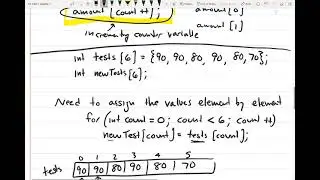 amount [count++]; amount[0]
amount [1]
incrementing counter variable
int tests [6] = {90, 90, 80, 90, 80, 70};
int newTests[6];
Need to assign the values element by element
for (int count = 0; count < 6; count++)
newTest[count] = tests [count];
0 1 2 3 4 5
tests 90 90 80 90 80 70